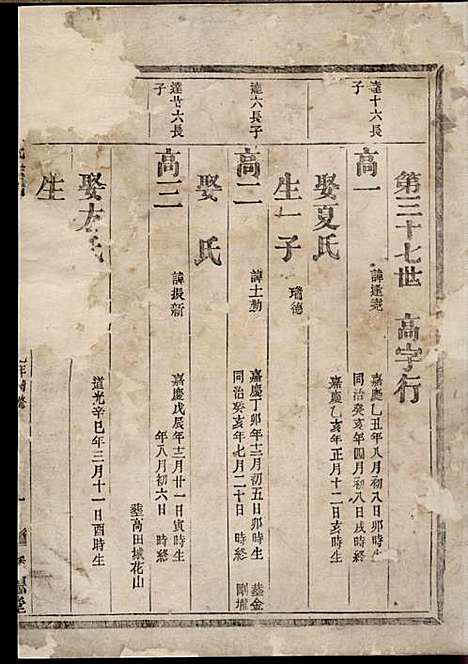 第三十七世 高字行
達十六長子
高一
諱達堯
嘉慶乙丑年八月初八日卯時生
同治癸亥年四月初八日戌時終
娶夏氏
嘉慶乙亥年正月十二日亥時生
生一子
瓊德
達六長子
高二
諱士勤
嘉慶丁卯年十二月初五日卯時生
同治癸亥年七月二十日 時終
葬金剛壠
娶 氏
達廿六長子
高三
諱振新
嘉慶戊辰年十二月廿一日寅時生
年八月初六日 時終
葬高田墈花山
娶左氏
道光辛巳年三月十一日酉時生
生